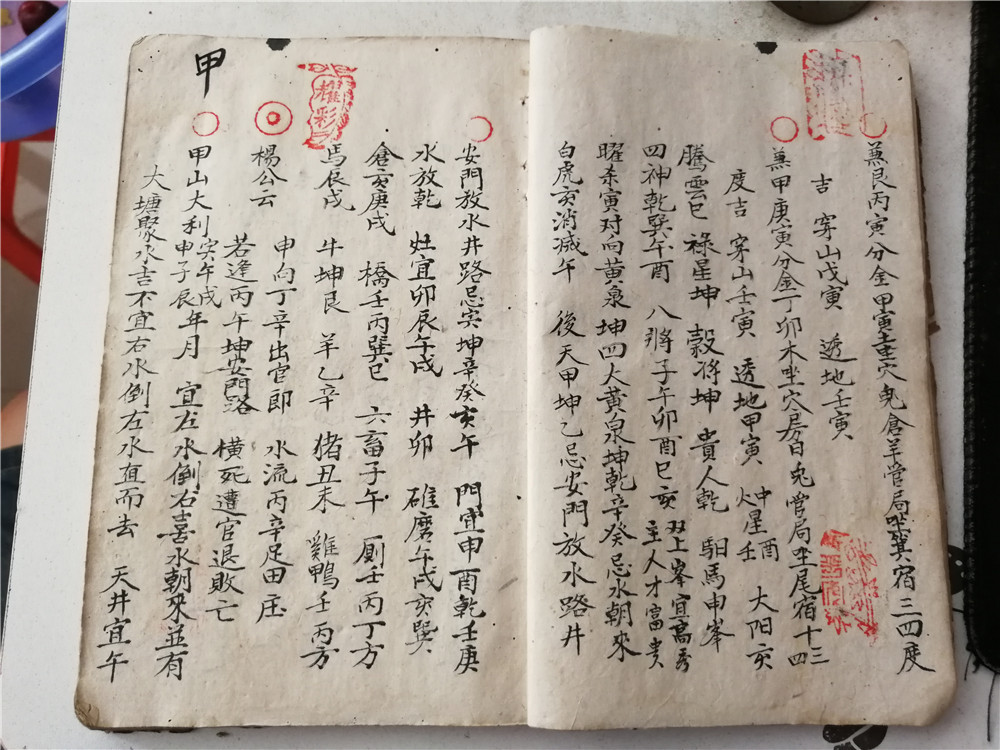 兼艮丙寅分金甲寅重穴鬼倉羊管局坐箕宿三四度
吉 穿山戊寅 透地壬寅
兼甲庚寅分金丁卯木坐穴房日兎管局坐尾宿十三四
度吉 穿山壬寅 透地甲寅 大阳亥
騰雲巳 祿星坤 穀将坤 貴人乾 馹馬申峯
四神乾巽午酉 八將子午卯酉巳亥 峯宜高秀主人才富贵
曜杀寅对向黄泉坤四大黄泉坤乾辛癸忌水朝來
白虎亥消滅午 後天甲坤乙忌安門放水路井
安門放水井路忌寅坤辛癸亥午 門宜申酉乾壬庚
水放乾 灶宜卯辰午戌 井卯 碓磨午戌亥巽
倉亥庚戌 橋壬丙巽巳 六畜子午 厠壬丙丁方
馬辰戌 牛坤艮 羊乙辛 猪丑未 雞鴨壬丙方
楊公云 申向丁辛出官郎 水流丙辛足田庄
若逢丙午坤安門路 橫死遭官退敗亡
甲山大利寅午戌申子辰年月 宜左水倒右喜水朝來並有
大塘聚水吉不宜右水倒左水直而去 天井宜午
甲
耀彩